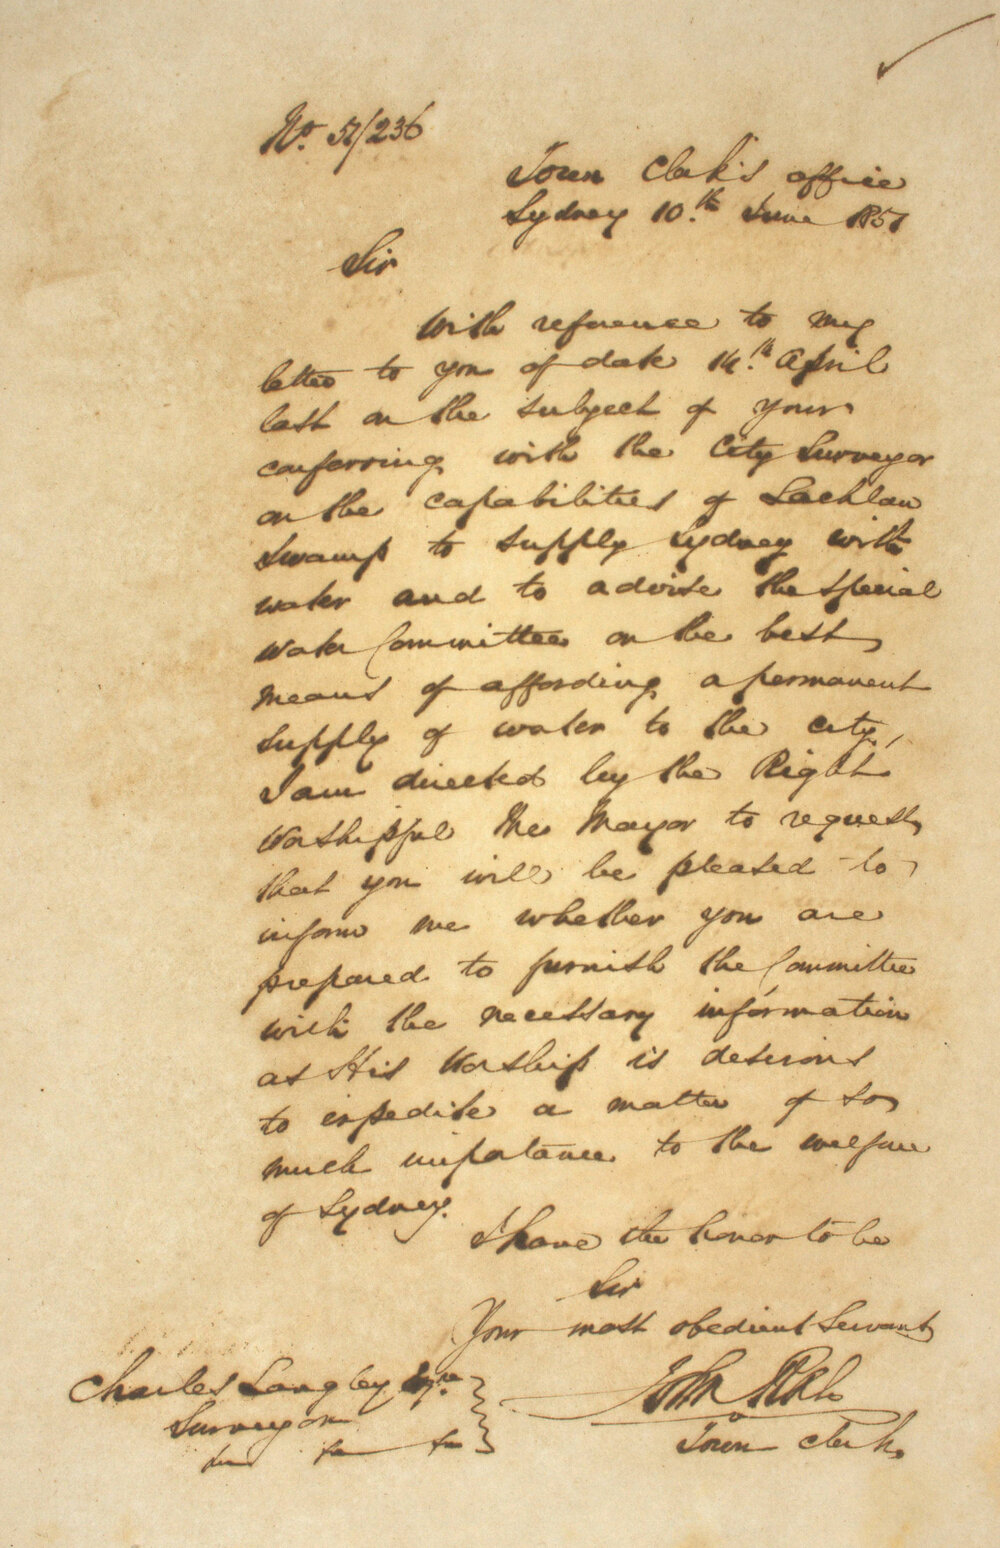 No. 51/236
Town Clerk's office
Sydney 10.th June 1851
Sir
With reference to my
letter to you of date 14.th April
last on the subject of your
conferring with the City Surveyor
on the capabilities of Lachlan
Swamp to supply Sydney with
water and to advise the special
Water Committee on the best
means of affording a permanent
supply of water to the city,
I am directed by the Right
Worshipful the Mayor to request
that you will be pleased to
inform me whether you are
prepared to furnish the Committee
with the necessary information
as His Worship is desirous
to expedite a matter of so
much importance to the welfare
of Sydney.
I have the honor to be
Sir
Your most obedient Servant
Charles Langley Esqre
John
Surveyor
Town Clerk